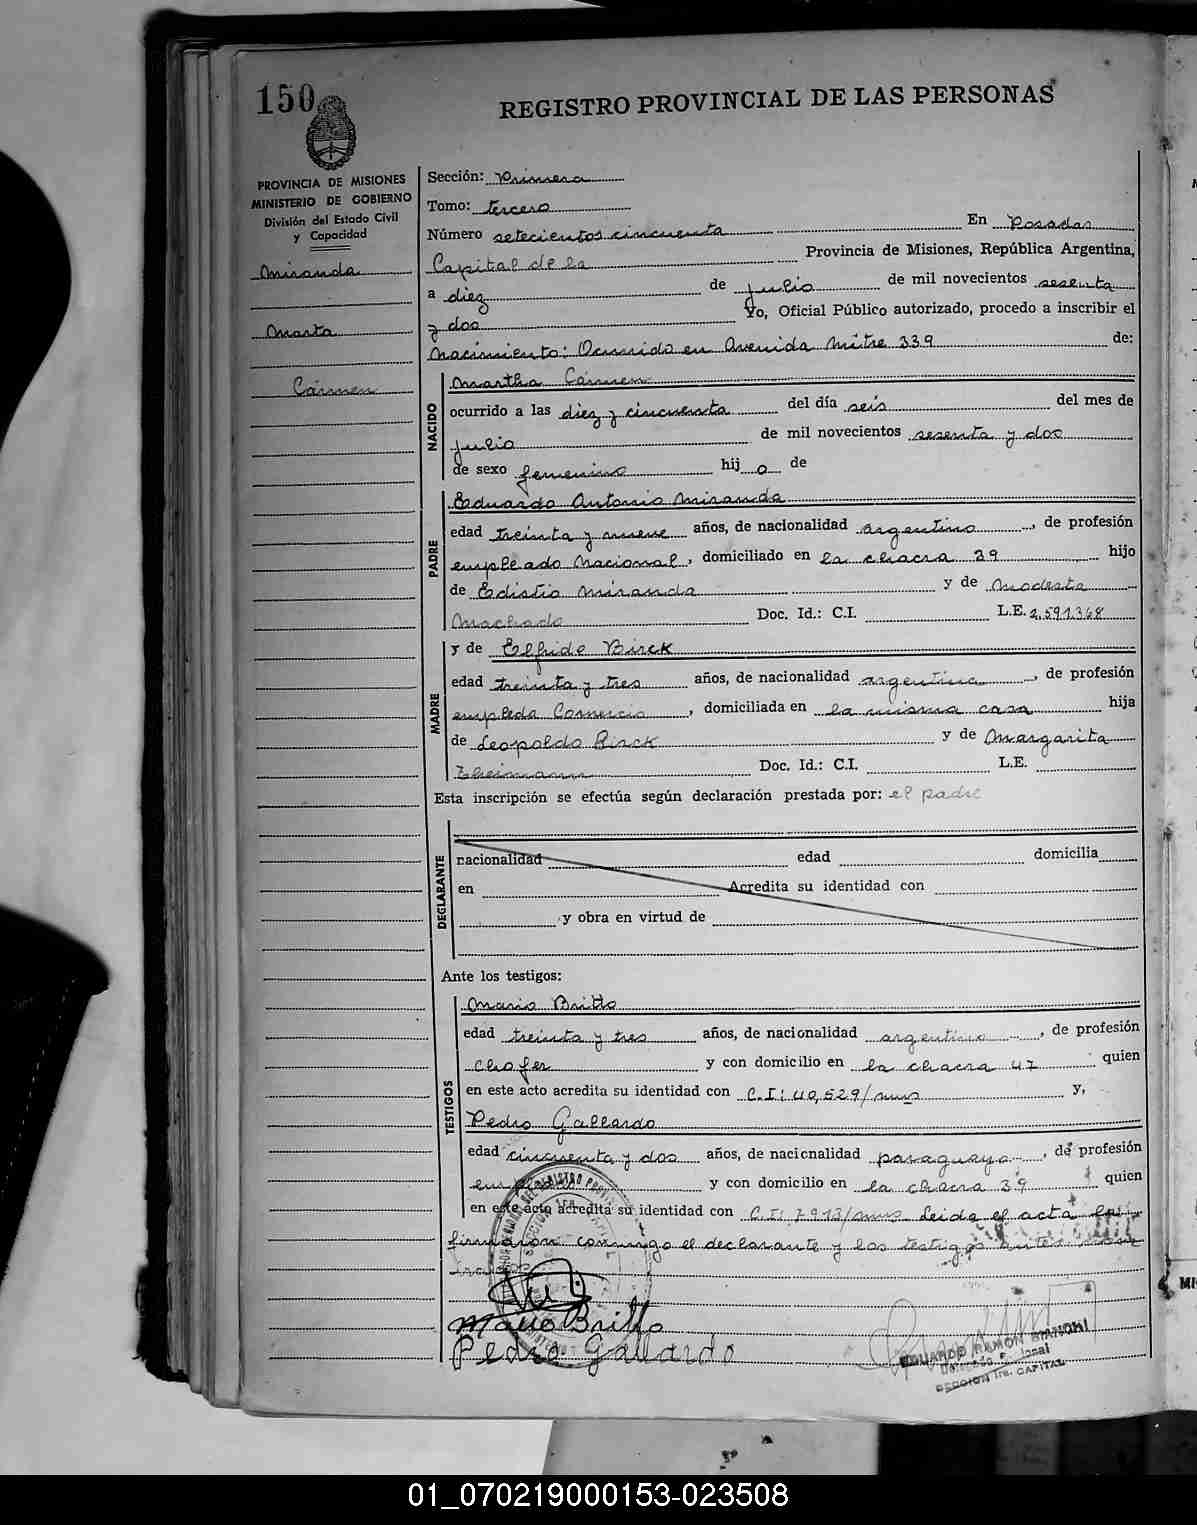 150
REGISTRO PROVINCIAL DE LAS PERSONAS
PROVINCIA DE MISIONES
MINISTERIO DE GOBIERNO
División del Estado Civil
y Capacidad
Miranda
Marta
Cármen
Sección: Primera
Tomo: tercero
Número setecientos cincuenta En Posadas
Capital de la Provincia de Misiones, República Argentina,
a diez de julio de mil novecientos sesenta
y dos Yo, Oficial Público autorizado, procedo a inscribir el
Nacimiento: Ocurrido en Avenida Mitre 339 de:
NACIDO
Martha Cármen
ocurrido a las diez y cincuenta del día seis del mes de
julio de mil novecientos sesenta y dos
de sexo femenino hij a de
PADRE
Eduardo Antonio Miranda
edad treinta y nueve años, de nacionalidad argentino, de profesión
empleado Nacional, domiciliado en la chacra 39 hijo
de Edistio Miranda y de Modesta
Machado Doc. Id.: C.I. L.E. 2.591.368
MADRE
y de Elfrida Birck
edad treinta y tres años, de nacionalidad argentina, de profesión
empleda Comercio, domiciliada en la misma casa hija
de Leopoldo Birck y de Margarita
Doc. Id.: C.I. L.E.
Esta inscripción se efectúa según declaración prestada por: el padre
DECLARANTE
nacionalidad edad domicilia
en Acredita su identidad con
y obra en virtud de
Ante los testigos:
TESTIGOS
Mario Britto
edad treinta y tres años, de nacionalidad argentino, de profesión
chofer y con domicilio en la chacra 47 quien
en este acto acredita su identidad con C.I: 40,529/mns y,
Pedro Gallardo
edad cincuenta y dos años, de nacionalidad paraguayo, de profesión
y con domicilio en la chacra 39 quien
en este acto acredita su identidad con C.I: 7973/mns Leida el acta la
firmaron conmigo el declarante y los testigos antes nom
brados
Mario Britto
Pedro Gallardo
EDUARDO RAMON BIANCHI
SECCION 1ra. CAPITAL
MI
01_070219000153-023508